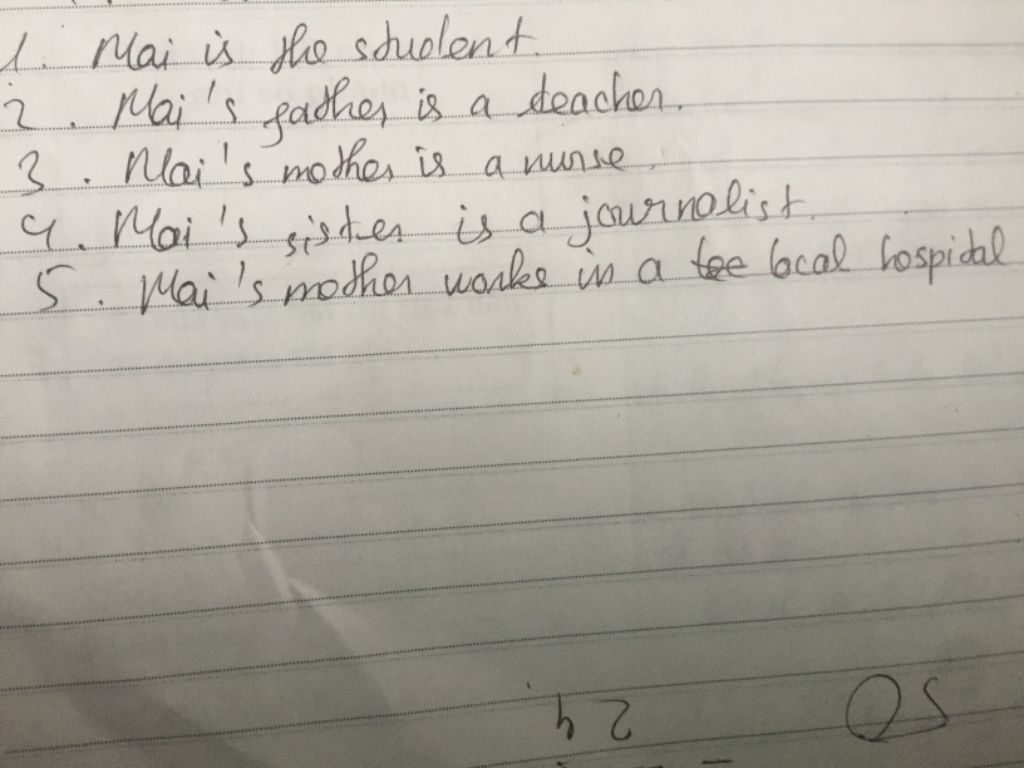 1. Mai is the student.
2. Mai's father is a teacher.
3. Mai's mother is a nurse.
4. Mai's sister is a journalist.
5. Mai's mother works in a local hospital